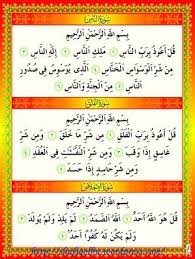 سورة الناس
بِسْمِ اللَّهِ الرَّحْمَٰنِ الرَّحِيمِ
قُلْ أَعُوذُ بِرَبِّ النَّاسِ ۝ مَلِكِ النَّاسِ ۝ إِلَٰهِ النَّاسِ ۝
مِن شَرِّ الْوَسْوَاسِ الْخَنَّاسِ ۝ الَّذِي يُوَسْوِسُ فِي صُدُورِ
النَّاسِ ۝ مِنَ الْجِنَّةِ وَالنَّاسِ ۝
سورة الفلق
بِسْمِ اللَّهِ الرَّحْمَٰنِ الرَّحِيمِ
قُلْ أَعُوذُ بِرَبِّ الْفَلَقِ ۝ مِن شَرِّ مَا خَلَقَ ۝ وَمِن شَرِّ
غَاسِقٍ إِذَا وَقَبَ ۝ وَمِن شَرِّ النَّفَّاثَاتِ فِي الْعُقَدِ ۝
وَمِن شَرِّ حَاسِدٍ إِذَا حَسَدَ ۝
سورة الإخلاص
بِسْمِ اللَّهِ الرَّحْمَٰنِ الرَّحِيمِ
قُلْ هُوَ اللَّهُ أَحَدٌ ۝ اللَّهُ الصَّمَدُ ۝ لَمْ يَلِدْ وَلَمْ يُولَدْ ۝
وَلَمْ يَكُن لَّهُ كُفُوًا أَحَدٌ ۝